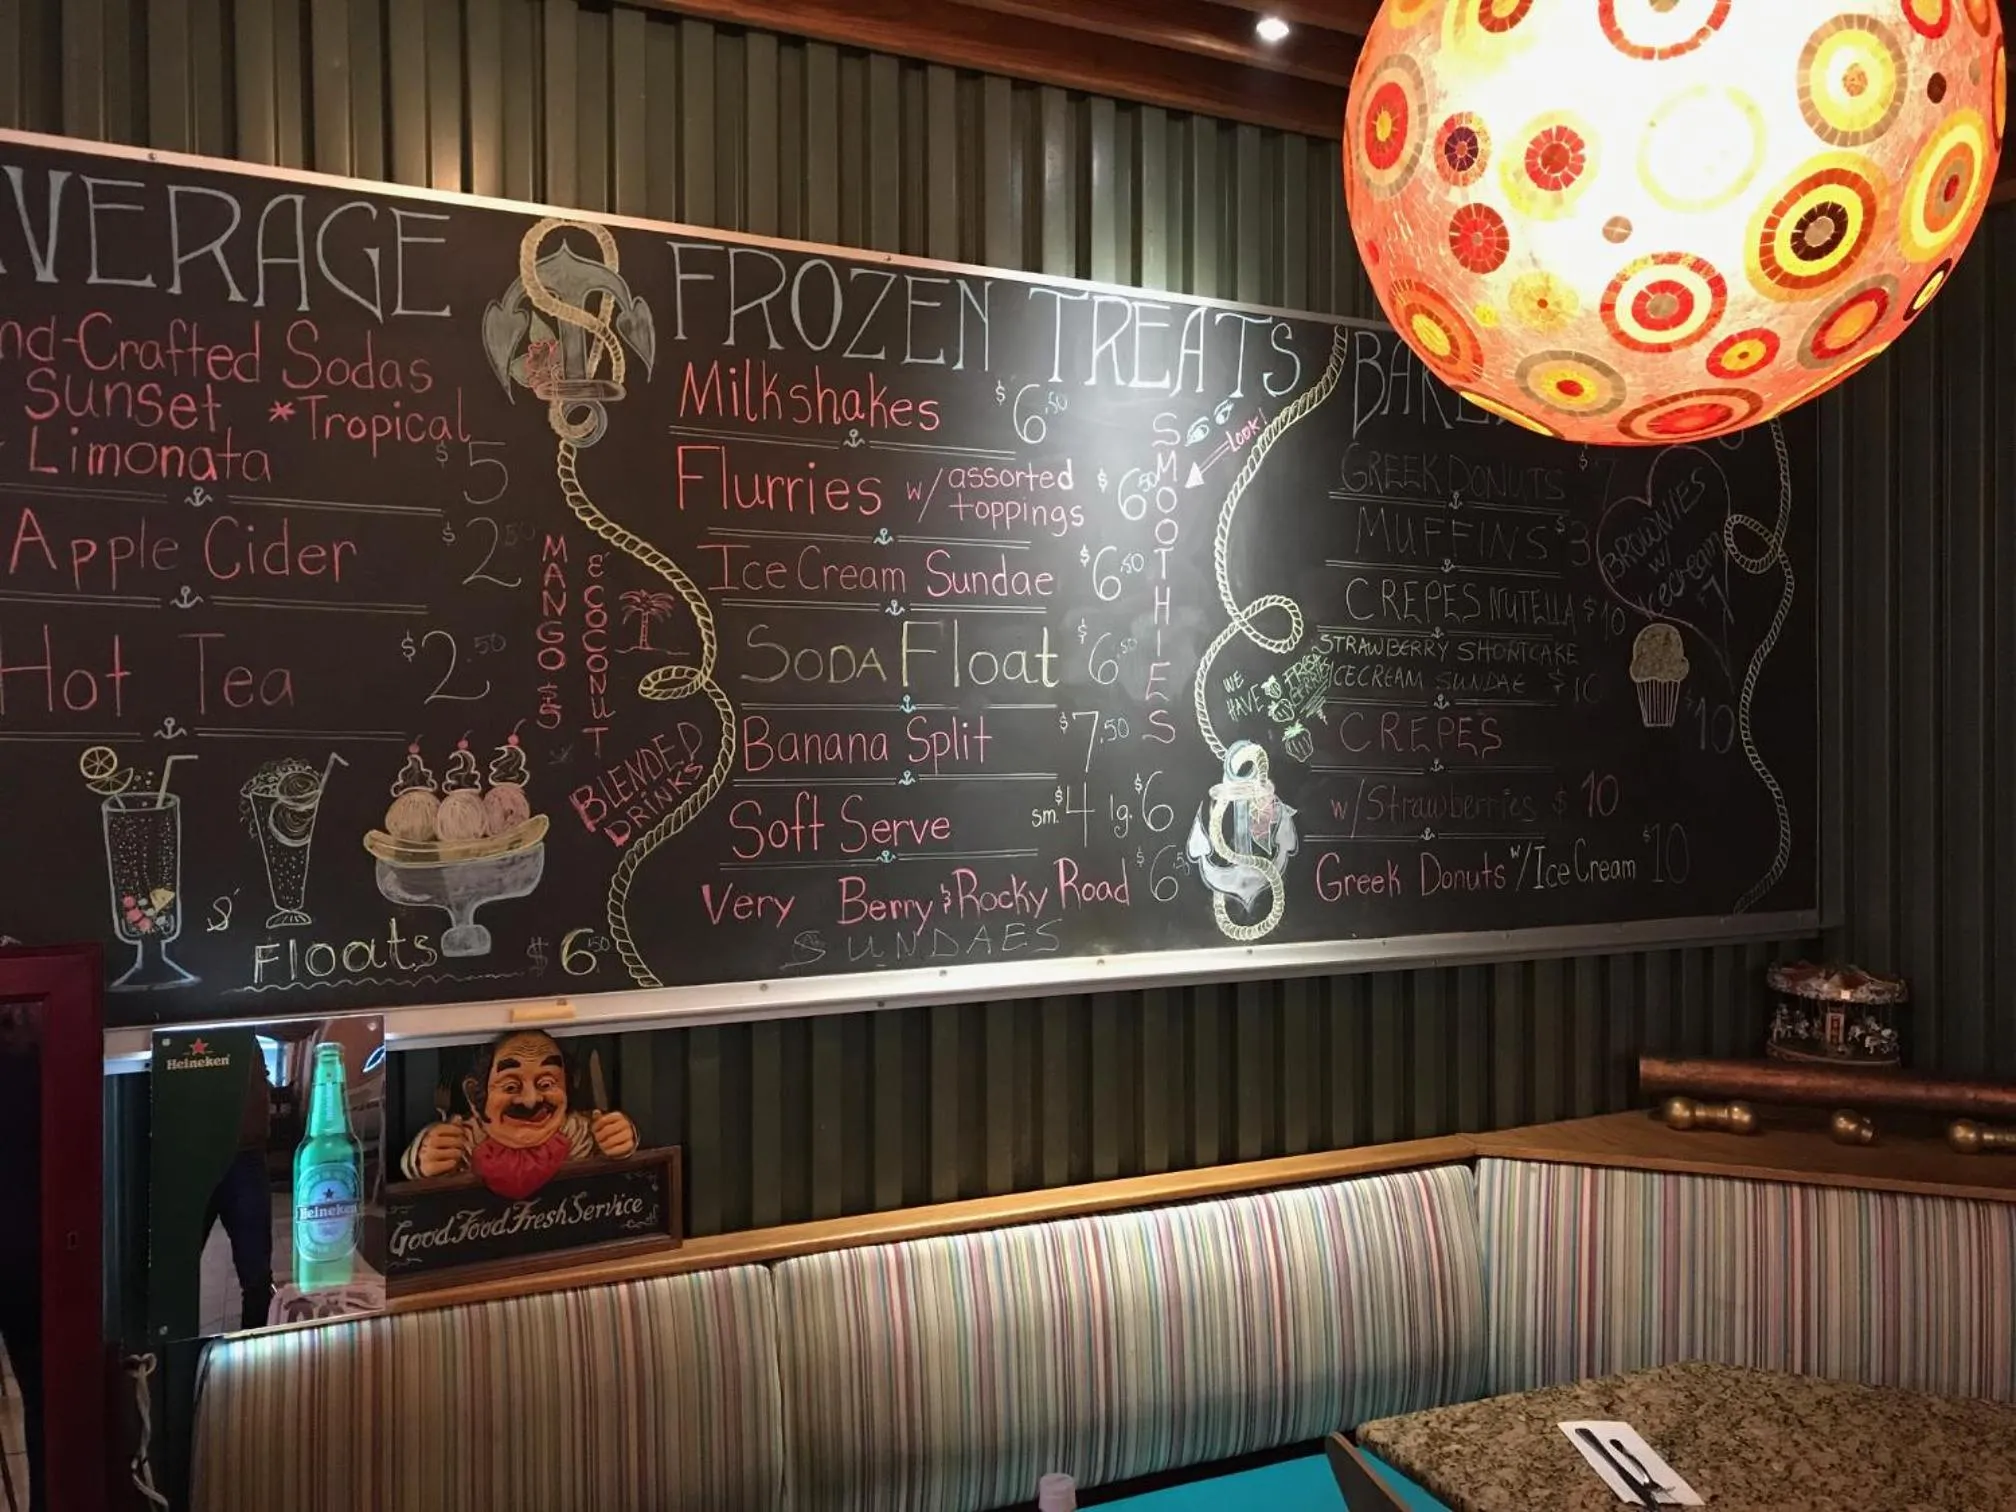 VERAGE
nd-Crafted Sodas
Sunset *Tropical
Limonata $5
Apple Cider $2.50
Hot Tea $2.50
MANGO $5
& COCONUT
BLENDED
DRINKS
&
Floats $6.50
FROZEN TREATS
Milkshakes $6.50
Flurries w/ assorted
toppings $6.50
Ice Cream Sundae $6.50
SODA Float $6.50
Banana Split $7.50
Soft Serve sm. $4 lg. $6
Very Berry & Rocky Road $6.5
SUNDAES
SMOOTHIES
Look!
WE
HAVE
FRESH
BERRIES
GREEK DONUTS $7
MUFFINS $3
CREPES NUTELLA $10
STRAWBERRY SHORTCAKE
ICECREAM SUNDAE $10
CREPES
w/Strawberries $10
Greek Donuts w/ Ice Cream $10
BROWNIES
w/
Icecream
$7
$10
Heineken
Heineken
Good Food Fresh Service